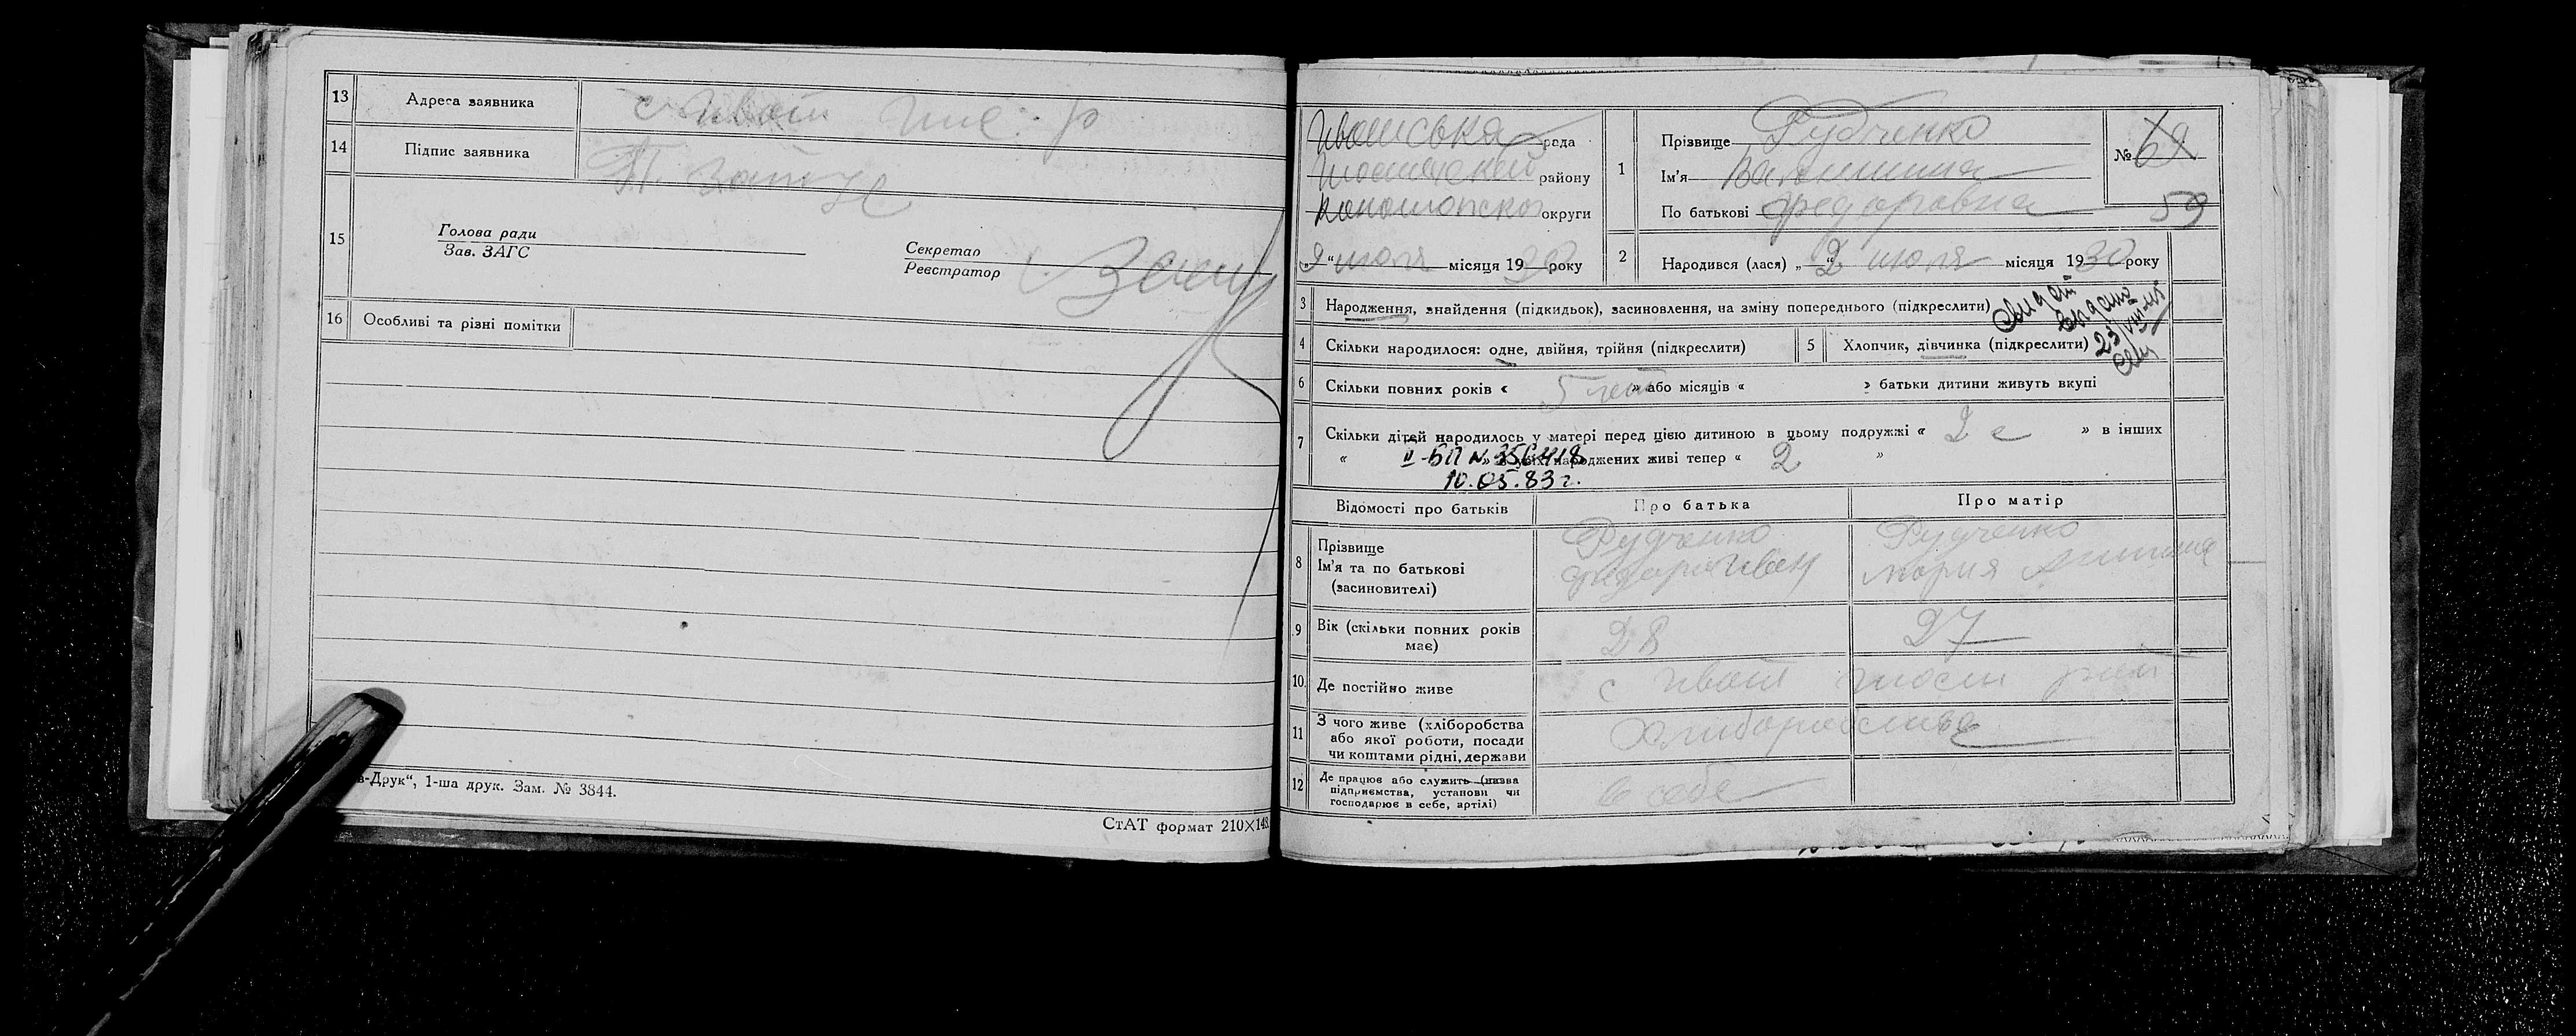 13 Адреса заявника с Ивот
14 Підпис заявника
15 Голова ради
Зав. ЗАГС
Секретар
Реєстратор
16 Особливі та різні помітки
в-Друк“, 1-ша друк. Зам. № 3844.
СтАТ формат 210×148
Ивотська рада
району
округи
„9“ июля місяця 1930 року
1 Прізвище Рудченко
Ім'я Валентина
По батькові Федоровна
№ 69
59
2 Народився (лася) „2“ июля місяця 1930 року
3 Народження, знайдення (підкидьок), засиновлення, на зміну попереднього (підкреслити)
4 Скільки народилося: одне, двійня, трійня (підкреслити)
5 Хлопчик, дівчинка (підкреслити)
6 Скільки повних років « 5 лет » або місяців « » батьки дитини живуть вкупі
7 Скільки дітей народилось у матері перед цією дитиною в цьому подружжі « 2 » в інших
« » з усіх народжених живі тепер « 2 »
II-БП № 356418
10.05.83 г.
Відомості про батьків Про батька Про матір
8 Прізвище
Ім'я та по батькові
(засиновителі)
Рудченко
Федор Иван
Рудченко
Мария
9 Вік (скільки повних років
має)
28 27
10. Де постійно живе с Ивот
11 З чого живе (хліборобства
або якої роботи, посади
чи коштами рідні, держави
12 Де працює або служить (назва
підприємства, установи чи
господарює в себе, артілі)
в себе